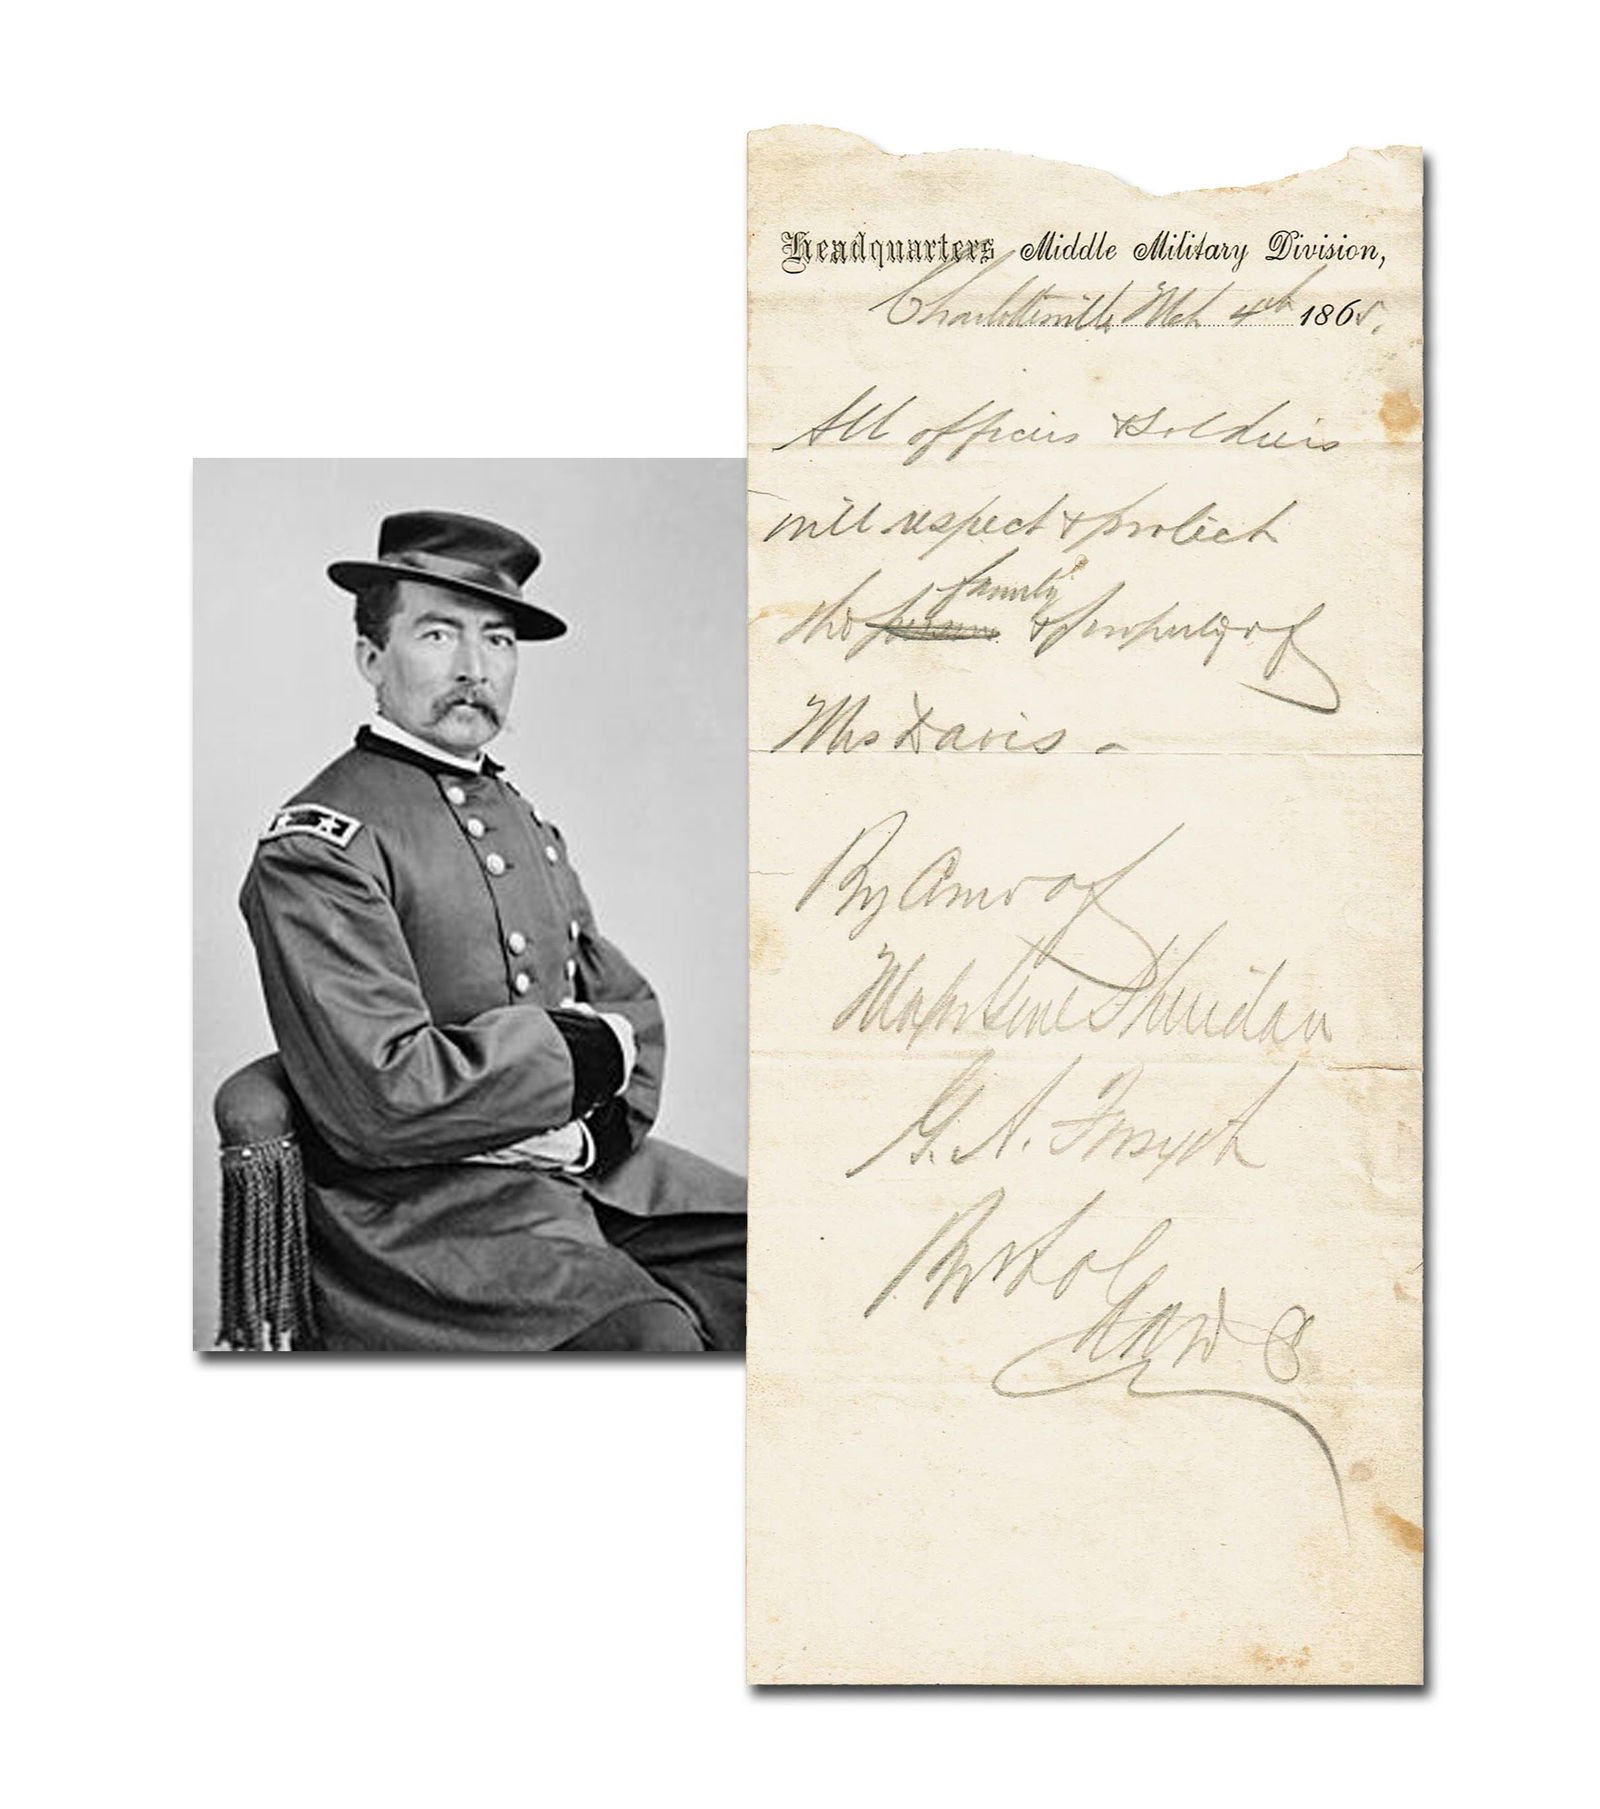 Headquarters Middle Military Division,
Charlottesville Mch 4th 1865.
All officers & Soldiers
will respect & protect
family
the person & property of
Mrs Davis -
By Com'd of
Major Genl Sheridan
G. A. Forsyth
Bvt Col